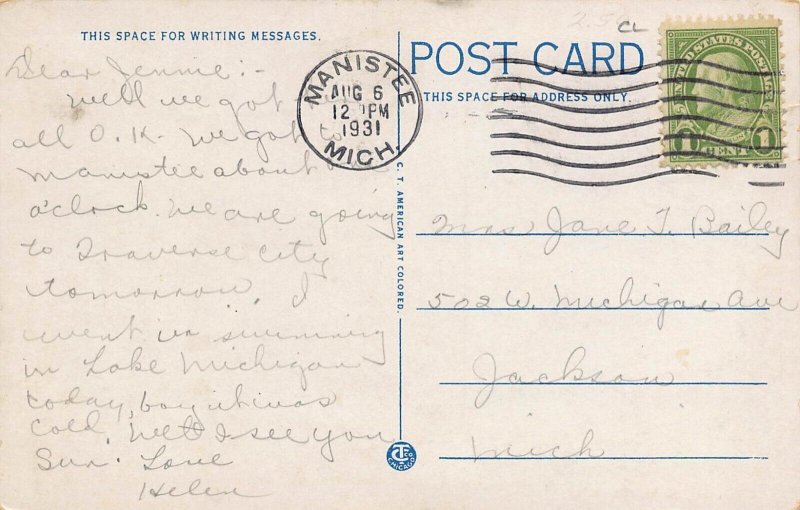 THIS SPACE FOR WRITING MESSAGES.
Dear Jennie:-
Well we got
all O.K. We got
Manistee about one
o'clock. We are going
to Traverse City
tomorrow, I
went in swimming
in Lake Michigan
today, boy it was
cold. Well I see you
Sun. Love
Helen
C. T. AMERICAN ART COLORED.
CT CO
CHICAGO
2.50 CL
MANISTEE
AUG 6
12 PM
1931
MICH.
POST CARD
THIS SPACE FOR ADDRESS ONLY.
UNITED STATES POSTAGE
1 CENT 1
Mrs Jane T. Bailey
502 W. Michigan Ave
Jackson
Mich